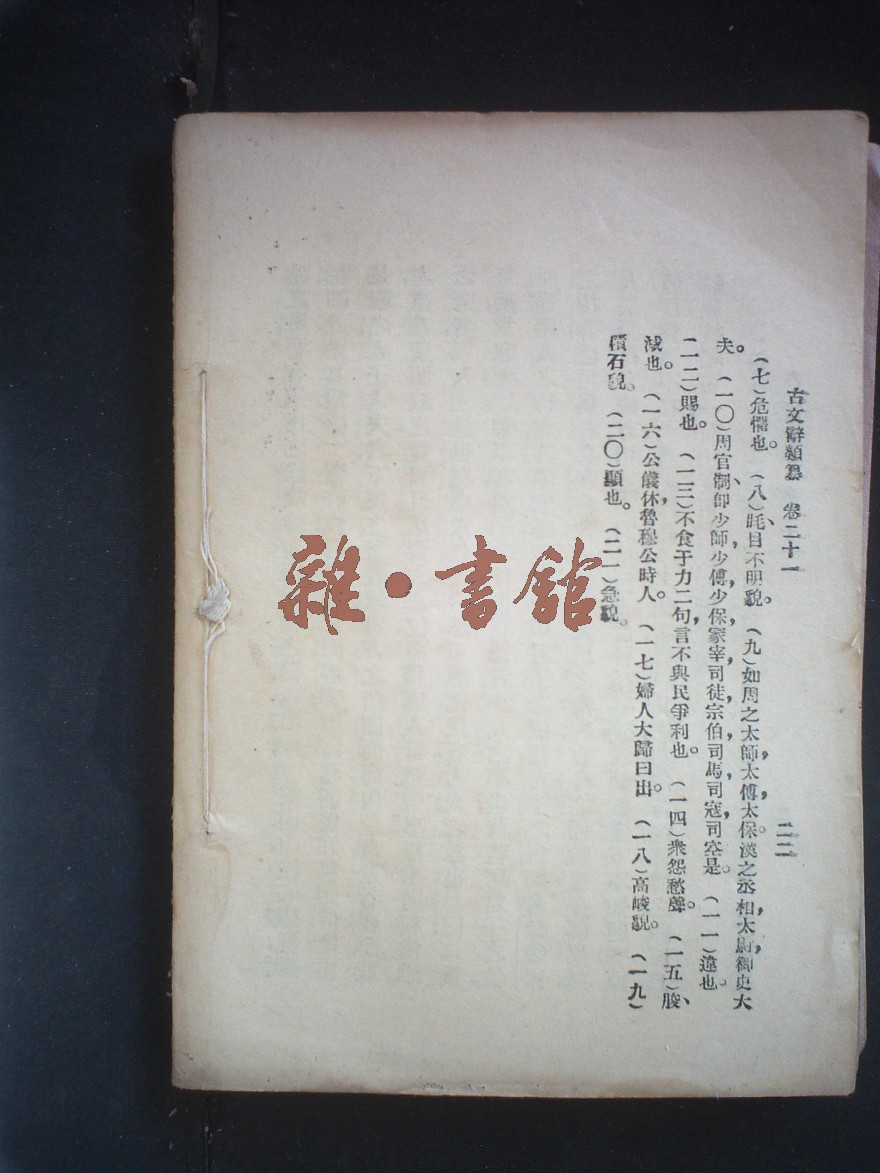 古文辭類纂　卷二十一　二二
（七）危懼也。（八）眊、目不明貌。（九）如周之太師，太傅，太保。漢之丞相，太尉，御史大
夫。（一〇）周官制、卽少師，少傅，少保，冢宰，司徒，宗伯，司馬，司寇，司空是。（一一）遠也。
（一二）賜也。（一三）不食于力二句，言不與民爭利也。（一四）衆怨愁聲。（一五）朘、
減也。（一六）公儀休，魯穆公時人。（一七）婦人大歸曰出。（一八）高峻貌。（一九）
積石貌。（二〇）顯也。（二一）急貌。
雜·書館